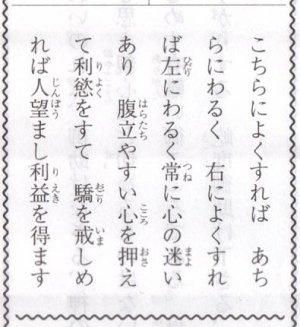 こちらによくすれば　あち
らにわるく　右によくすれ
ば左にわるく常に心の迷い
あり　腹立やすい心を押え
て利慾をすて　驕を戒しめ
れば人望まし利益を得ます